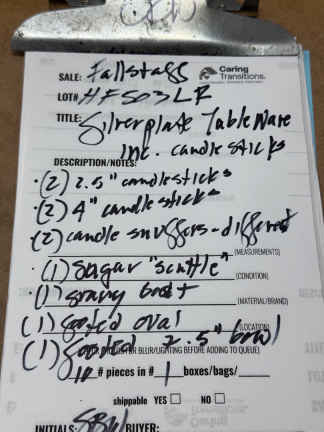 Caring
Transitions.
SALE: Fallstaff
LOT# HFS03LR
TITLE: Silverplate Tableware
inc. candlesticks
DESCRIPTION/NOTES:
· (2) 2.5" candlesticks
· (2) 4" candlesticks
(2) candle snuffers - different
(MEASUREMENTS)
· (1) sugar "scuttle"
(CONDITION)
· (1) gravy boat
(MATERIAL/BRAND)
(1) footed oval
(LOCATION)
(1) footed 2.5" bowl
BLUR/LIGHTING BEFORE ADDING TO QUEUE)
10 # pieces in # 1 boxes/bags/
shippable YES □ NO □
INITIALS: SBW BUYER: